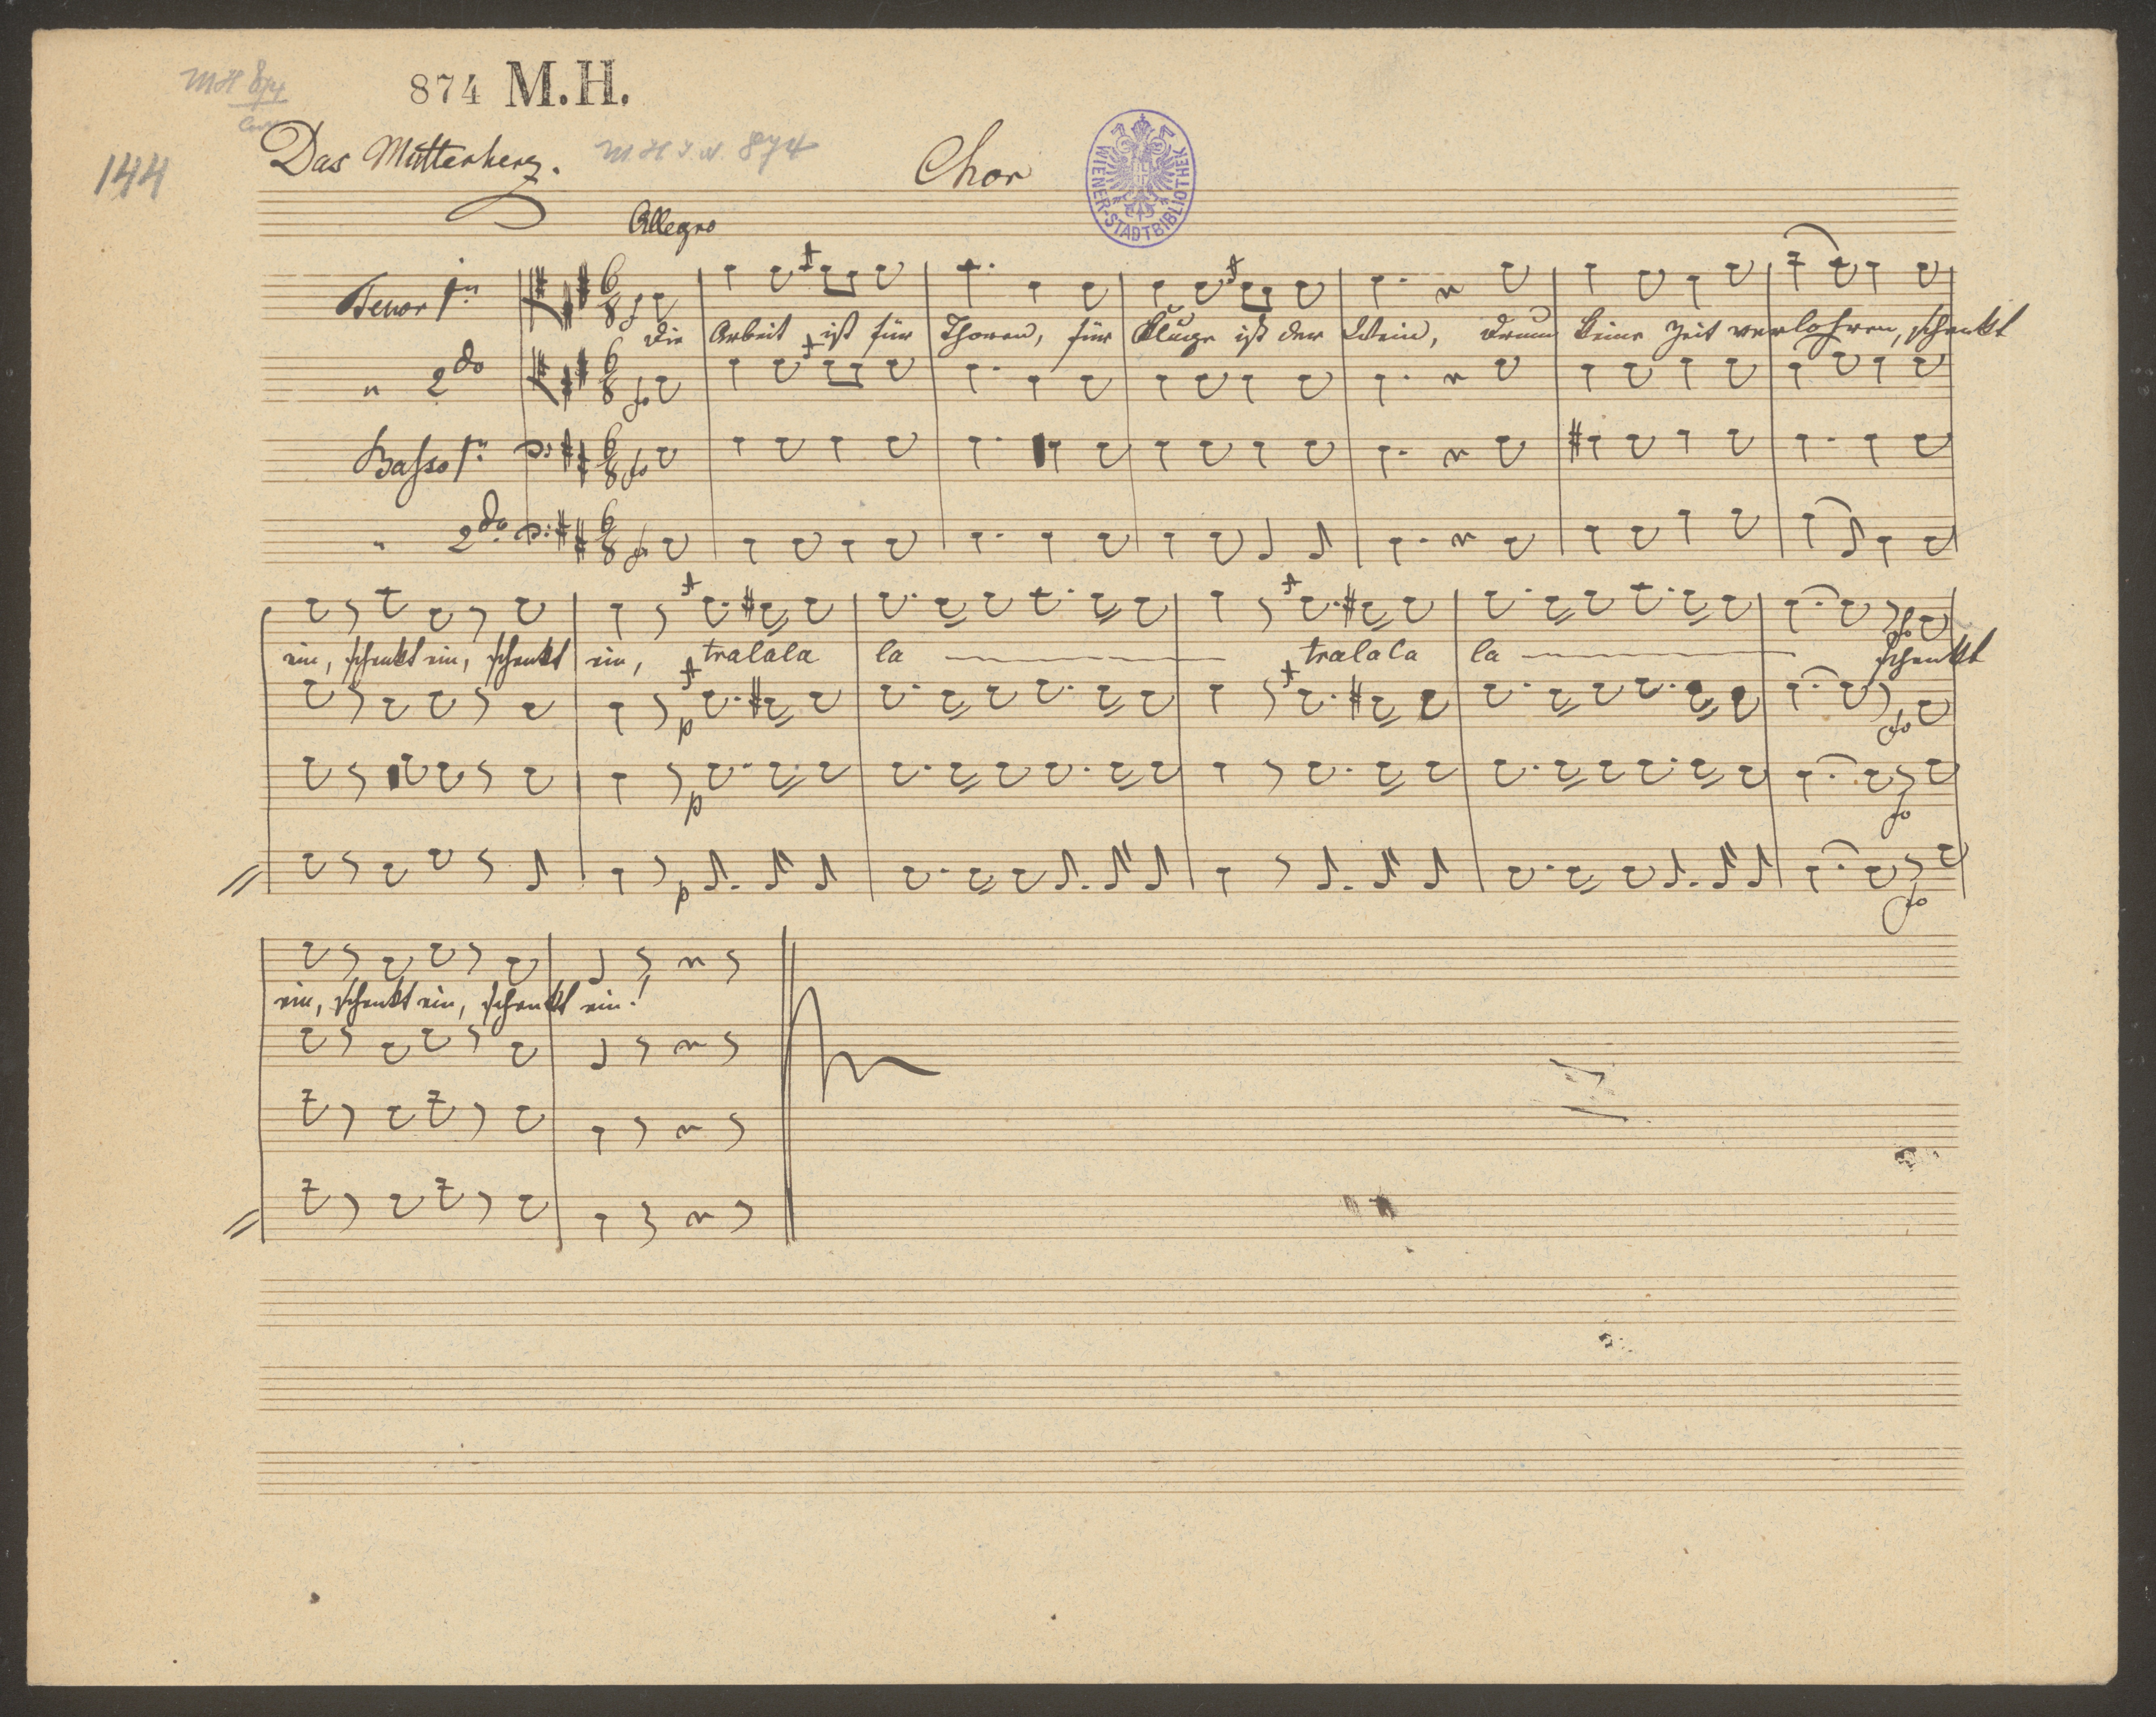 MH 874
874 M.H.
144
Das Mutterherz.
M H I. N. 874
Chor
WIENER-STADTBIBLIOTHEK
Allegro
Tenor 1mo
Die Arbeit ist für Thoren, für Kluge ist der Wein, drum keine Zeit verlohren, schenkt
" 2do
Basso 1mo
" 2do
ein, schenkt ein, schenkt ein, tralala la tralala la schenkt
p
fo
p
fo
p
fo
ein, schenkt ein, schenkt ein!